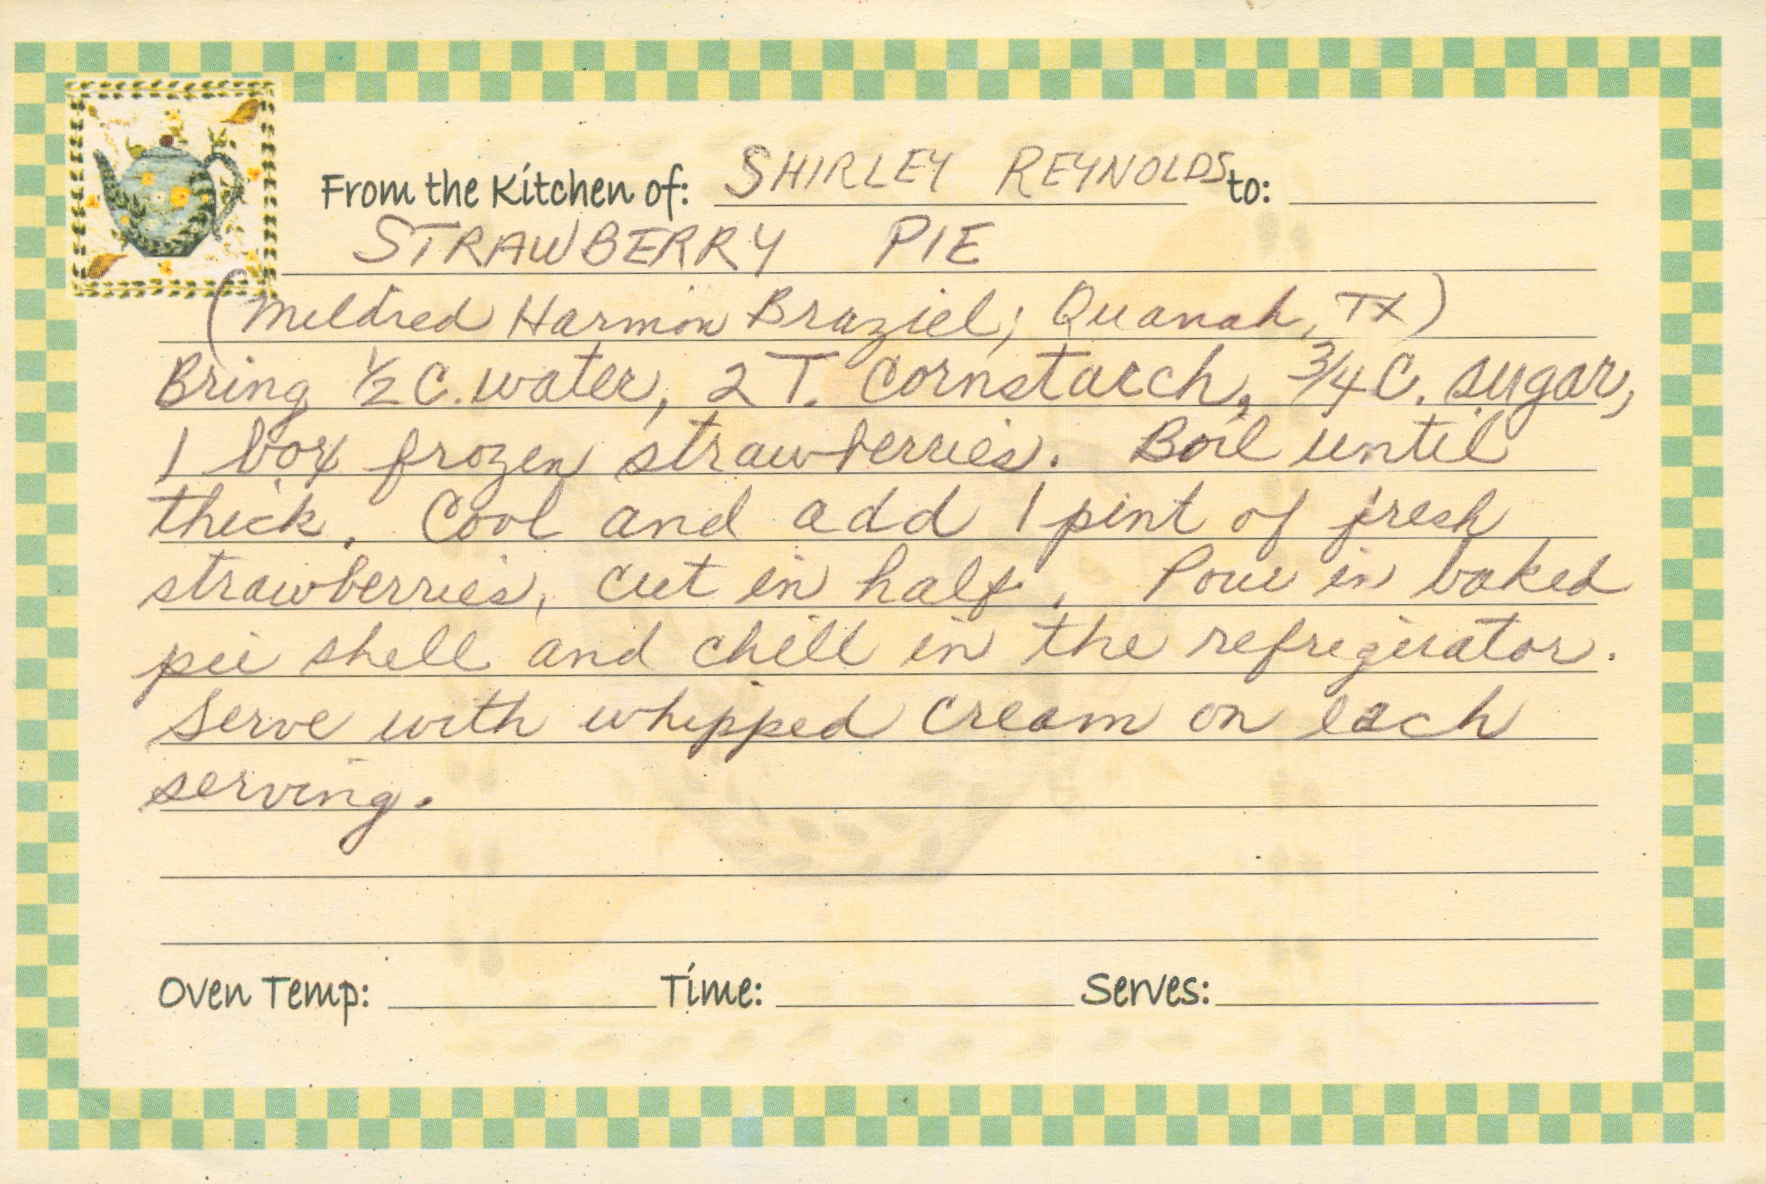 From the Kitchen of: SHIRLEY REYNOLDS to:
STRAWBERRY PIE
(Mildred Harmon Braziel; Quanah, TX)
Bring ½ C. water, 2 T. Cornstarch, ¾ C. sugar,
1 box frozen strawberries. Boil until
thick. Cool and add 1 pint of fresh
strawberries, cut in half. Pour in baked
pie shell and chill in the refrigerator.
Serve with whipped cream on each
serving.
Oven Temp: Time: Serves: